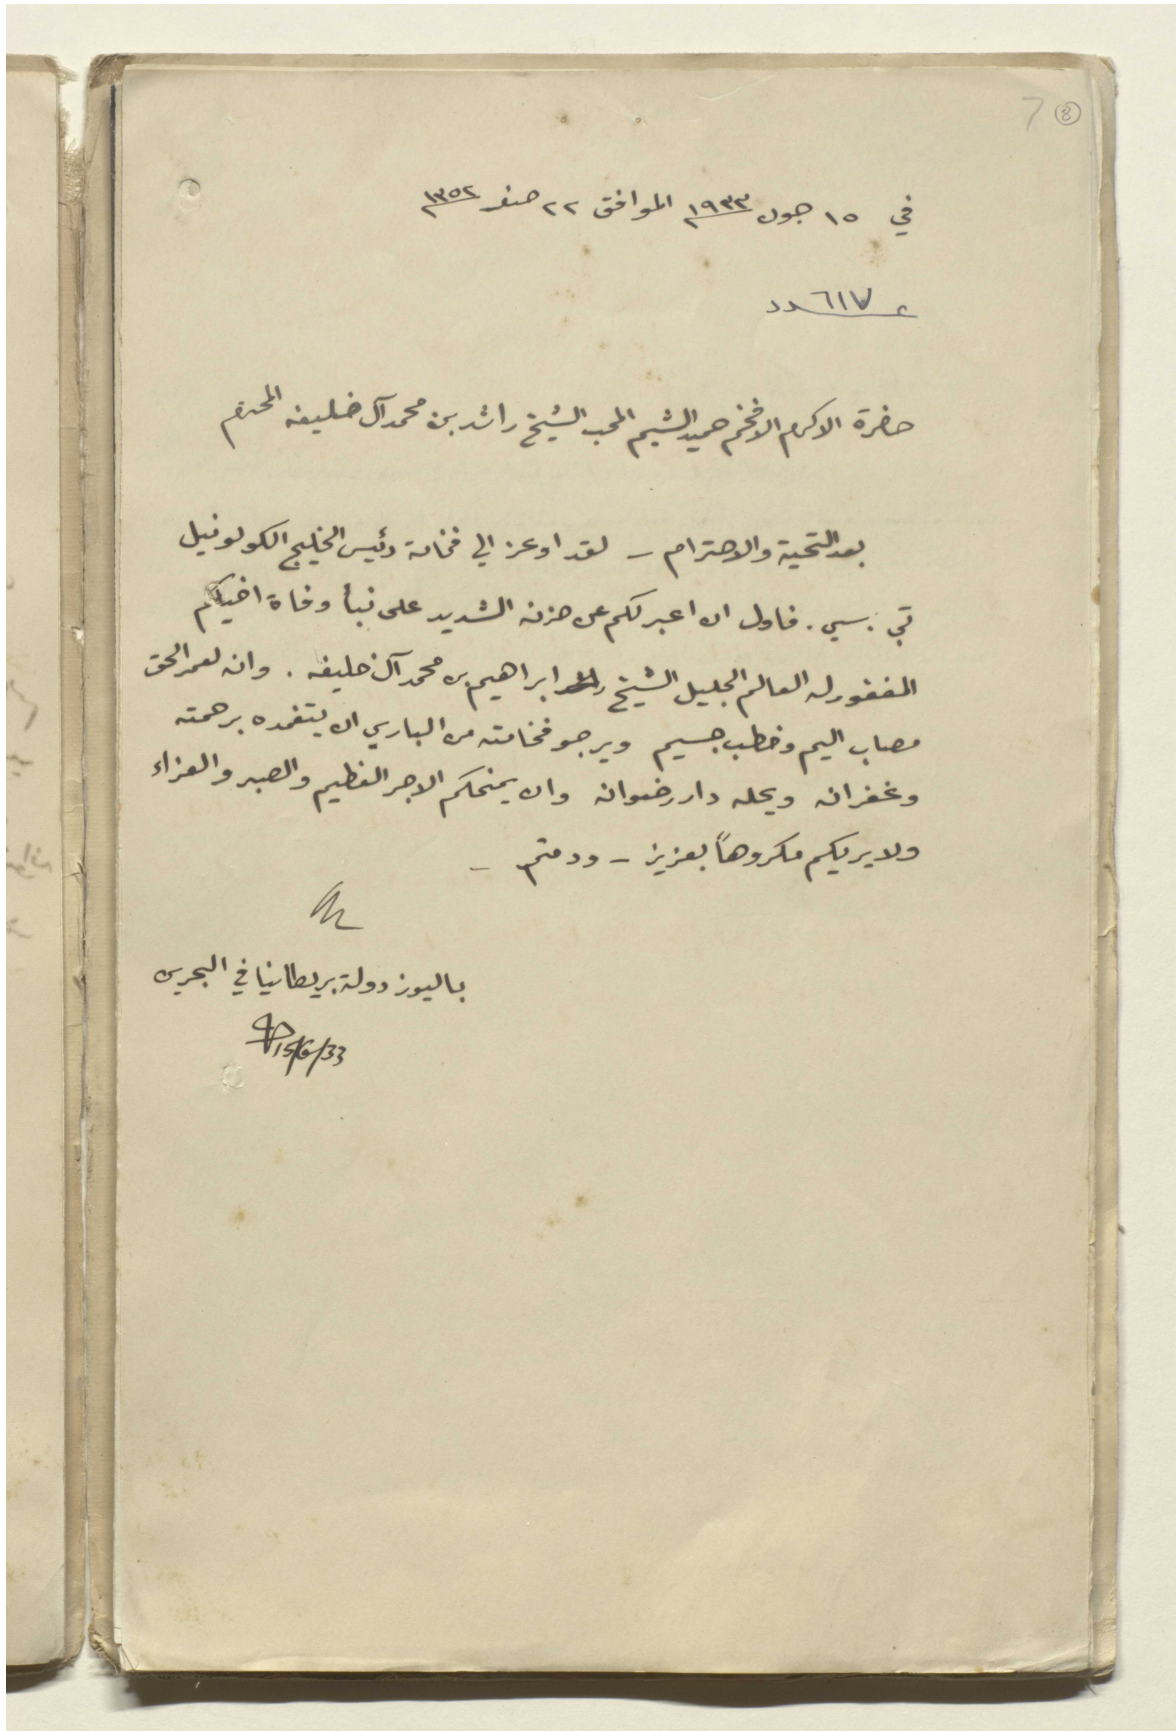 7 8
في ١٥ جون ١٩٣٣ الموافق ٢٢ صفر ١٣٥٢
عـ ٦١٧ ـدد
حضرة الاكرم الافخم حميد الشيم المحب الشيخ راشد بن محمد آل خليفه المحترم
بعد التحية والاحترام – لقد اوعز الي فخامة رئيس الخليج الكولونيل
تي . سي . فاول ان اعبر لكم عن حزنه الشديد على نبأ وفاة اخيكم
المغفور له العالم الجليل الشيخ ابراهيم بن محمد آل خليفه . وانه لعمر الحق
مصاب اليم وخطب جسيم ويرجو فخامته من الباري ان يتغمده برحمته
وغفرانه ويحله دار رضوانه وان يمنحكم الاجر العظيم والصبر والعزاء
ولا يريكم مكروهاً بعزيز – ودمتم –
باليوز دولة بريطانيا في البحرين
15/6/33